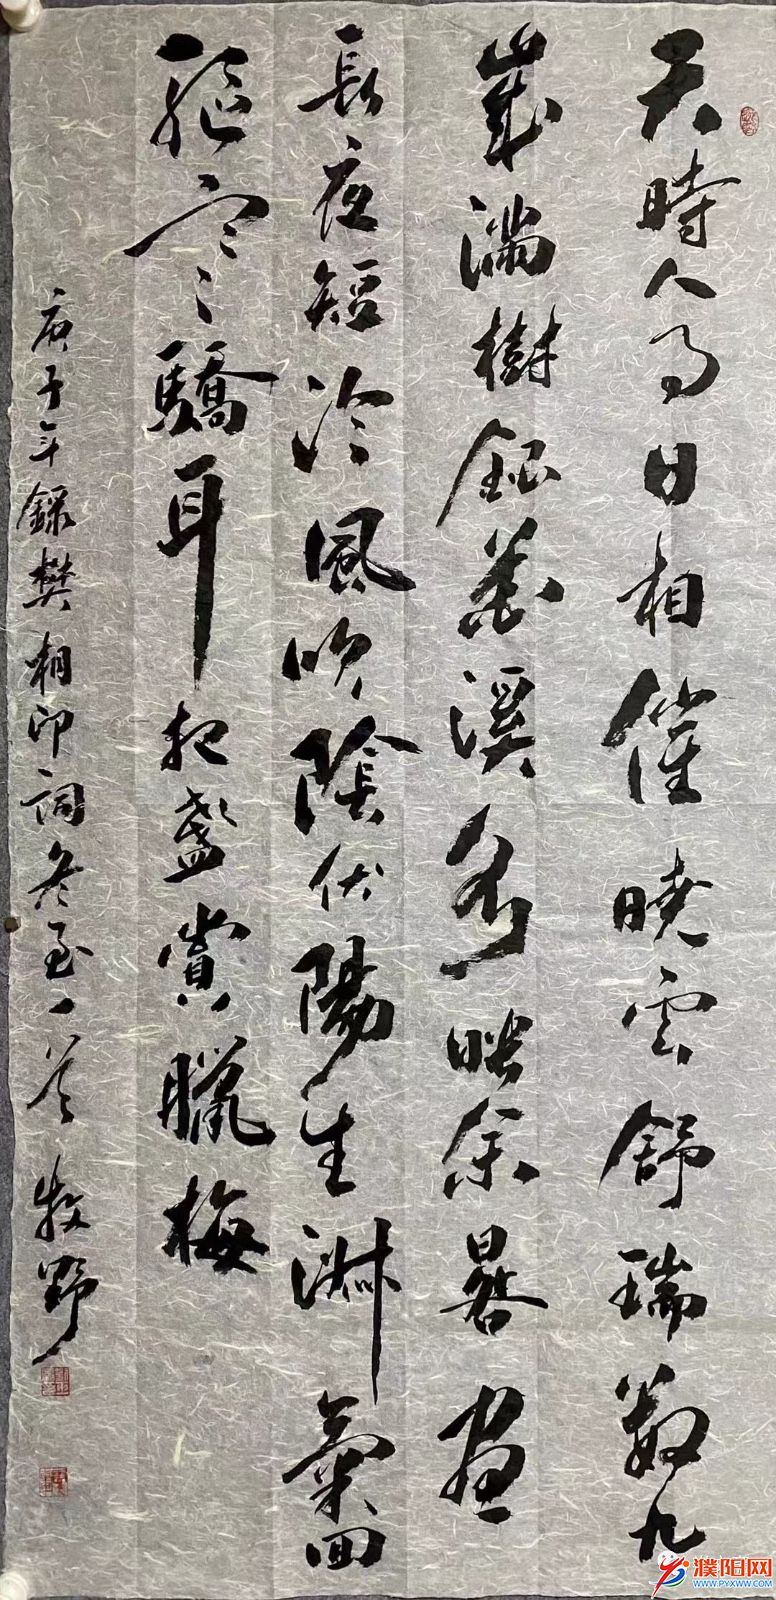 天時人事日相催曉雲舒瑞數九
嵗滿樹銀花溪水映余晷晝
長夜短冷風吹陰伏陽生淑氣回
軀寒驕耳把盞賞臘梅
庚子年錄樊相印詞冬至一首 牧野
濮阳网
WWW.PYXWW.COM